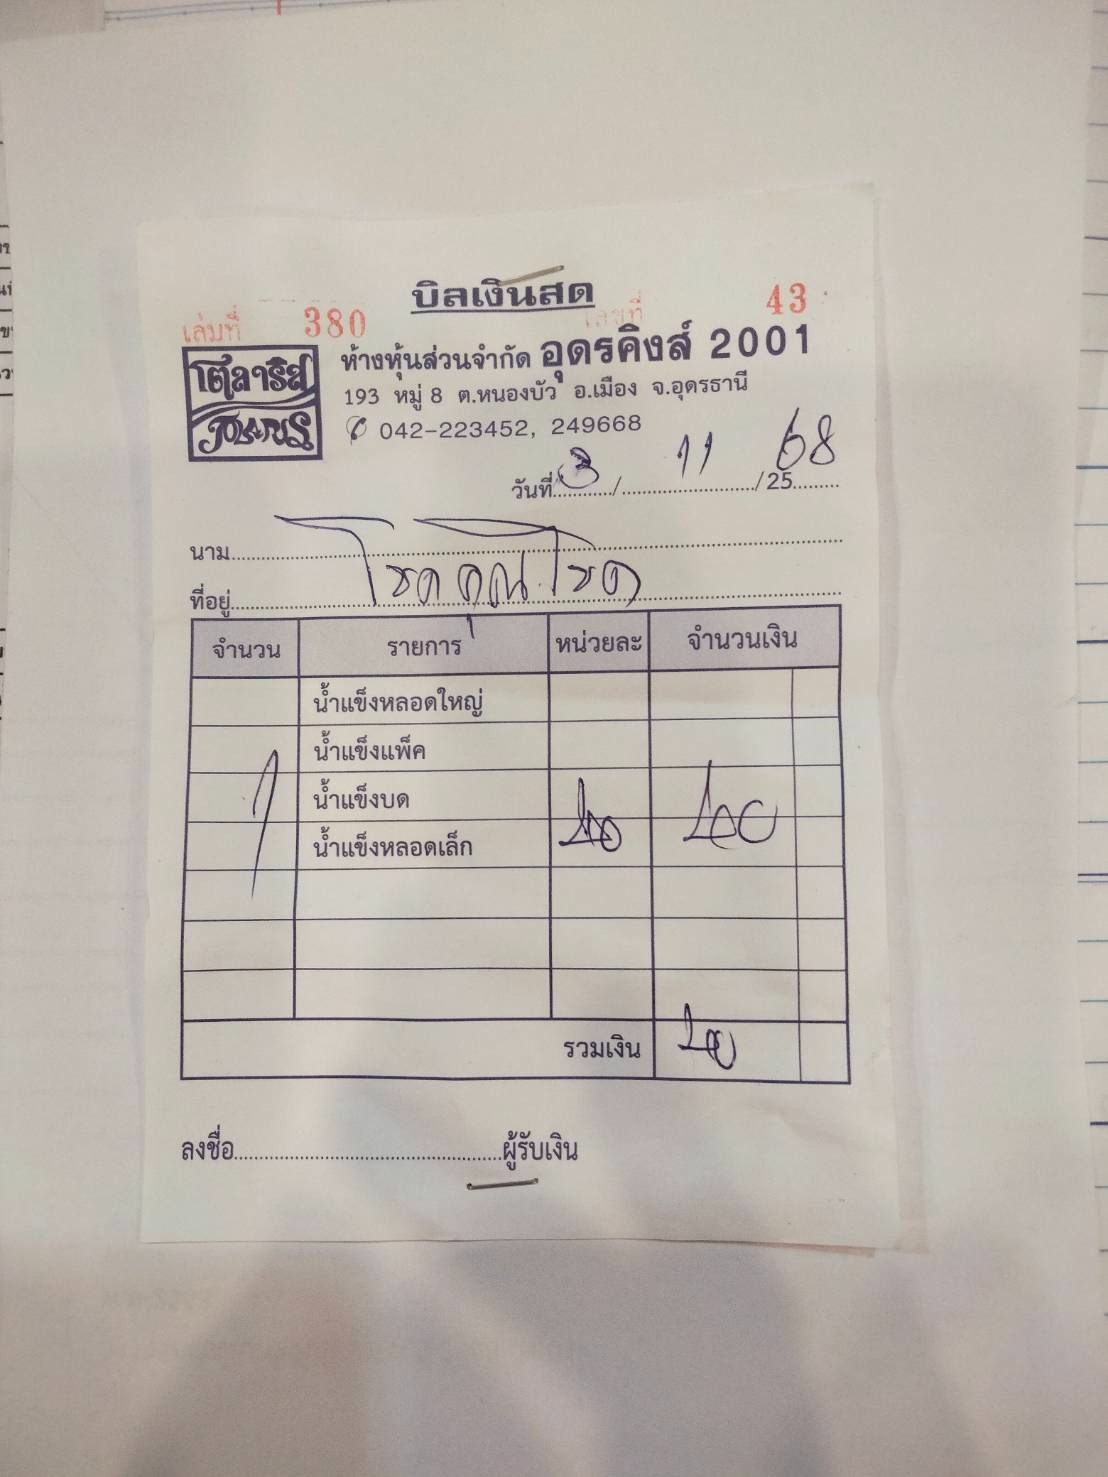 บิลเงินสด
เล่มที่ 380 เลขที่ 43
ห้างหุ้นส่วนจำกัด อุดรคิงส์ 2001
โตลาริส
POLARIS
193 หมู่ 8 ต.หนองบัว อ.เมือง จ.อุดรธานี
042-223452, 249668
วันที่ 3 / 11 / 25 68
นาม
โชคคุณโชค
ที่อยู่
จำนวน รายการ หน่วยละ จำนวนเงิน
น้ำแข็งหลอดใหญ่
น้ำแข็งแพ็ค
น้ำแข็งบด
1 น้ำแข็งหลอดเล็ก
รวมเงิน
ลงชื่อ ผู้รับเงิน